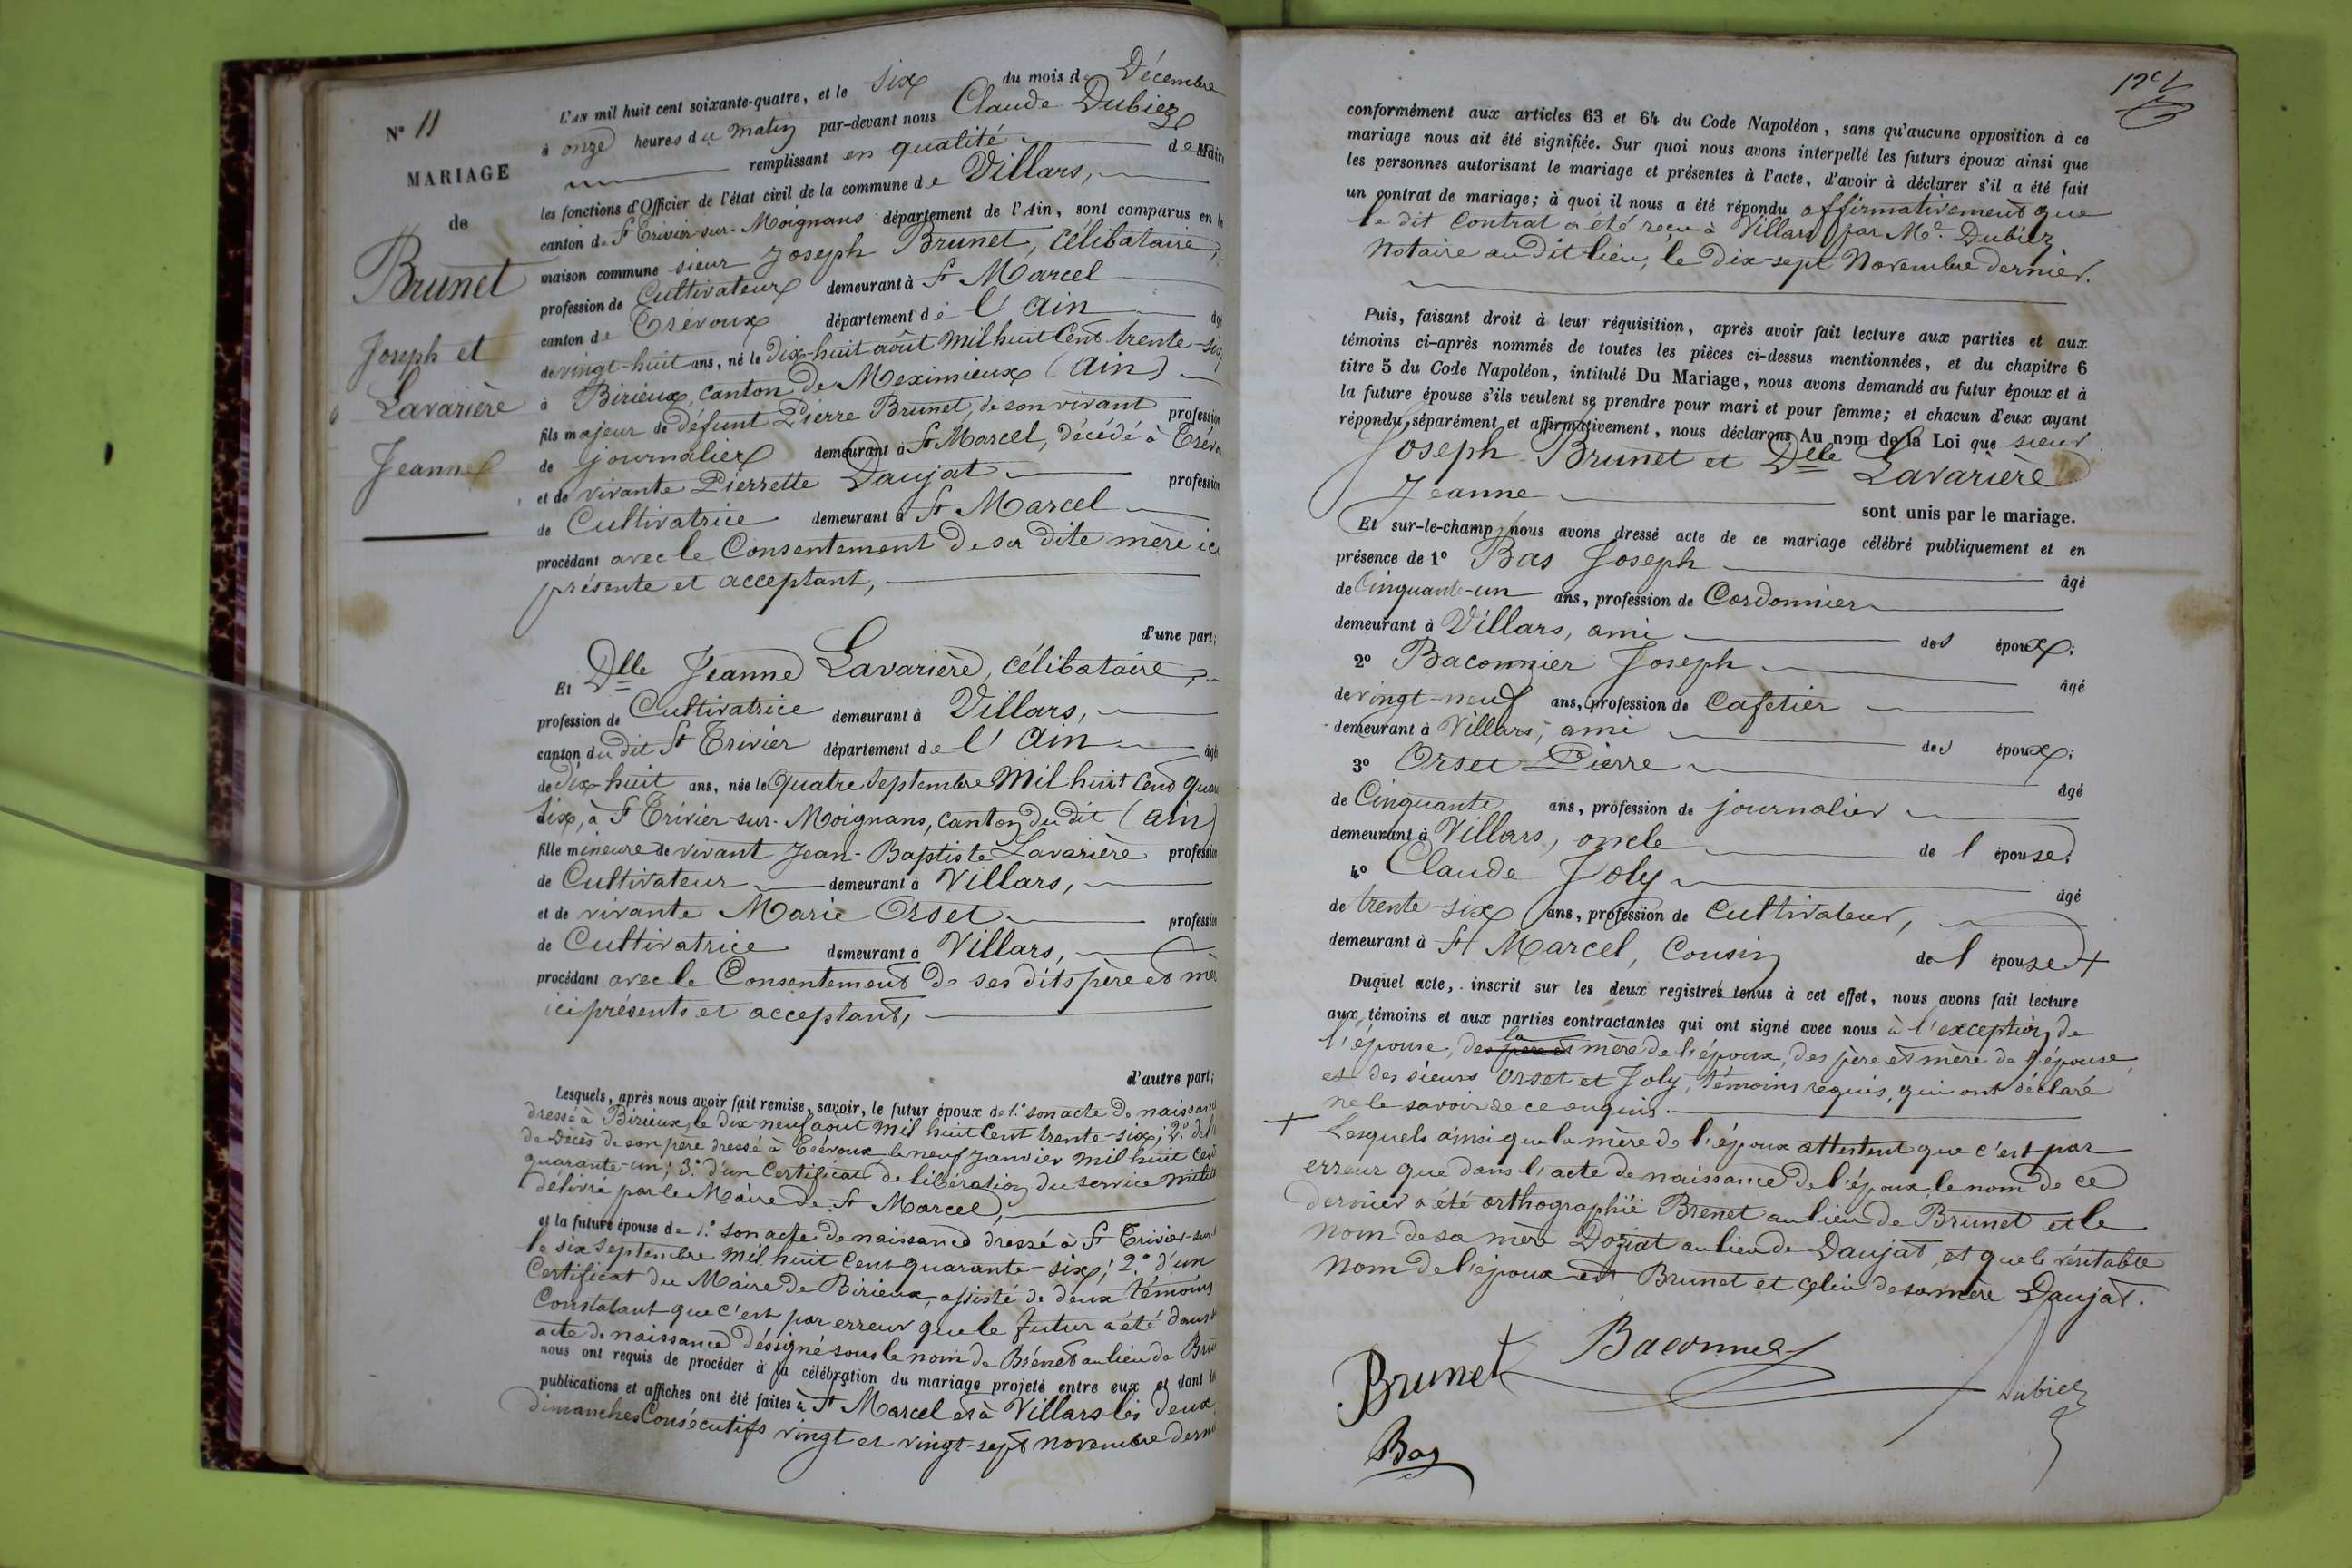 N° 11
MARIAGE
de
Brunet
Joseph et
Lavarière
Jeanne
L'AN mil huit cent soixante-quatre, et le six du mois de Décembre
à onze heures du matin par-devant nous Claude Dubiez
remplissant en qualité de Maire
les fonctions d'Officier de l'état civil de la commune de Villars,
canton de St Trivier-sur-Moignans département de l'Ain, sont comparus en la
maison commune sieur Joseph Brunet, célibataire,
profession de Cultivateur demeurant à St Marcel
canton de Trévoux département de l'Ain âgé
de vingt-huit ans, né le dix-huit août mil huit Cent trente-six
à Birieux, canton de Meximieux (Ain)
fils majeur de défunt Pierre Brunet, de son vivant profession
de journalier demeurant à St Marcel, décédé à Trévo
et de vivante Pierrette Daujat profession
de Cultivatrice demeurant à St Marcel
procédant avec le Consentement de sa dite mère ici
présente et acceptant,
d'une part;
Et Dlle Jeanne Lavarière, célibataire,
profession de Cultivatrice demeurant à Villars,
canton du dit St Trivier département de l'Ain âgée
de dix-huit ans, née le quatre Septembre Mil huit Cent quar
six, à St Trivier-sur-Moignans, canton du dit (Ain)
fille mineure de vivant Jean-Baptiste Lavarière profession
de Cultivateur demeurant à Villars,
et de vivante Marie Orset profession
de Cultivatrice demeurant à Villars,
procédant avec le Consentement de ses dits père et mèr
ici présents et acceptant,
d'autre part;
Lesquels, après nous avoir fait remise, savoir, le futur époux de 1.° son acte de naissance
dressé à Birieux, le dix-neuf août mil huit Cent trente-six; 2.° de l'
de décès de son père dressé à Trévoux le neuf janvier mil huit Cent
quarante-un; 3.° d'un Certificat de libération du service milit
délivré par le Maire de St Marcel,
et la future épouse de 1.° son acte de naissance dressé à St Trivier-sur-
le six Septembre mil huit Cent quarante-six; 2.° d'un
Certificat du Maire de Birieux, assisté de deux témoins
Constatant que c'est par erreur que le futur a été dans
acte de naissance désigné sous le nom de Brénet au lieu de Bru
nous ont requis de procéder à la célébration du mariage projeté entre eux et dont les
publications et affiches ont été faites à St Marcel et à Villars les deux
dimanches Consécutifs vingt et vingt-sept novembre derni
conformément aux articles 63 et 64 du Code Napoléon, sans qu'aucune opposition à ce
mariage nous ait été signifiée. Sur quoi nous avons interpellé les futurs époux ainsi que
les personnes autorisant le mariage et présentes à l'acte, d'avoir à déclarer s'il a été fait
un contrat de mariage; à quoi il nous a été répondu affirmativement que
le dit Contrat a été reçu à Villars par Me. Dubiez
Notaire au dit lieu, le dix-sept Novembre dernier.
Puis, faisant droit à leur réquisition, après avoir fait lecture aux parties et aux
témoins ci-après nommés de toutes les pièces ci-dessus mentionnées, et du chapitre 6
titre 5 du Code Napoléon, intitulé Du Mariage, nous avons demandé au futur époux et à
la future épouse s'ils veulent se prendre pour mari et pour femme; et chacun d'eux ayant
répondu séparément et affirmativement, nous déclarons Au nom de la Loi que sieur
Joseph Brunet et Dlle Lavarière
Jeanne sont unis par le mariage.
Et sur-le-champ nous avons dressé acte de ce mariage célébré publiquement et en
présence de 1° Bas Joseph âgé
de Cinquante-un ans, profession de Cordonnier
demeurant à Villars, ami des époux;
2° Baconnier Joseph âgé
de vingt-neuf ans, profession de Cafetier
demeurant à Villars, ami des époux;
3° Orset Pierre âgé
de Cinquante ans, profession de journalier
demeurant à Villars, oncle de l'épouse;
4° Claude Joly âgé
de trente-six ans, profession de Cultivateur,
demeurant à St Marcel, Cousin de l'épouse +
Duquel acte, inscrit sur les deux registres tenus à cet effet, nous avons fait lecture
aux témoins et aux parties contractantes qui ont signé avec nous à l'exception de
l'épouse, de la mère de l'époux, des père et mère de l'épouse
et des sieurs Orset et Joly, témoins requis, qui ont déclaré
ne le savoir de ce enquis.
+ Lesquels ainsi que la mère de l'époux attestent que c'est par
erreur que dans l'acte de naissance de l'époux, le nom de ce
dernier a été orthographié Brenet au lieu de Brunet et le
nom de sa mère Dojat au lieu de Daujat, et que le véritable
nom de l'époux est Brunet et celui de sa mère Daujat.
Brunet Baconnier Dubiez
Bas